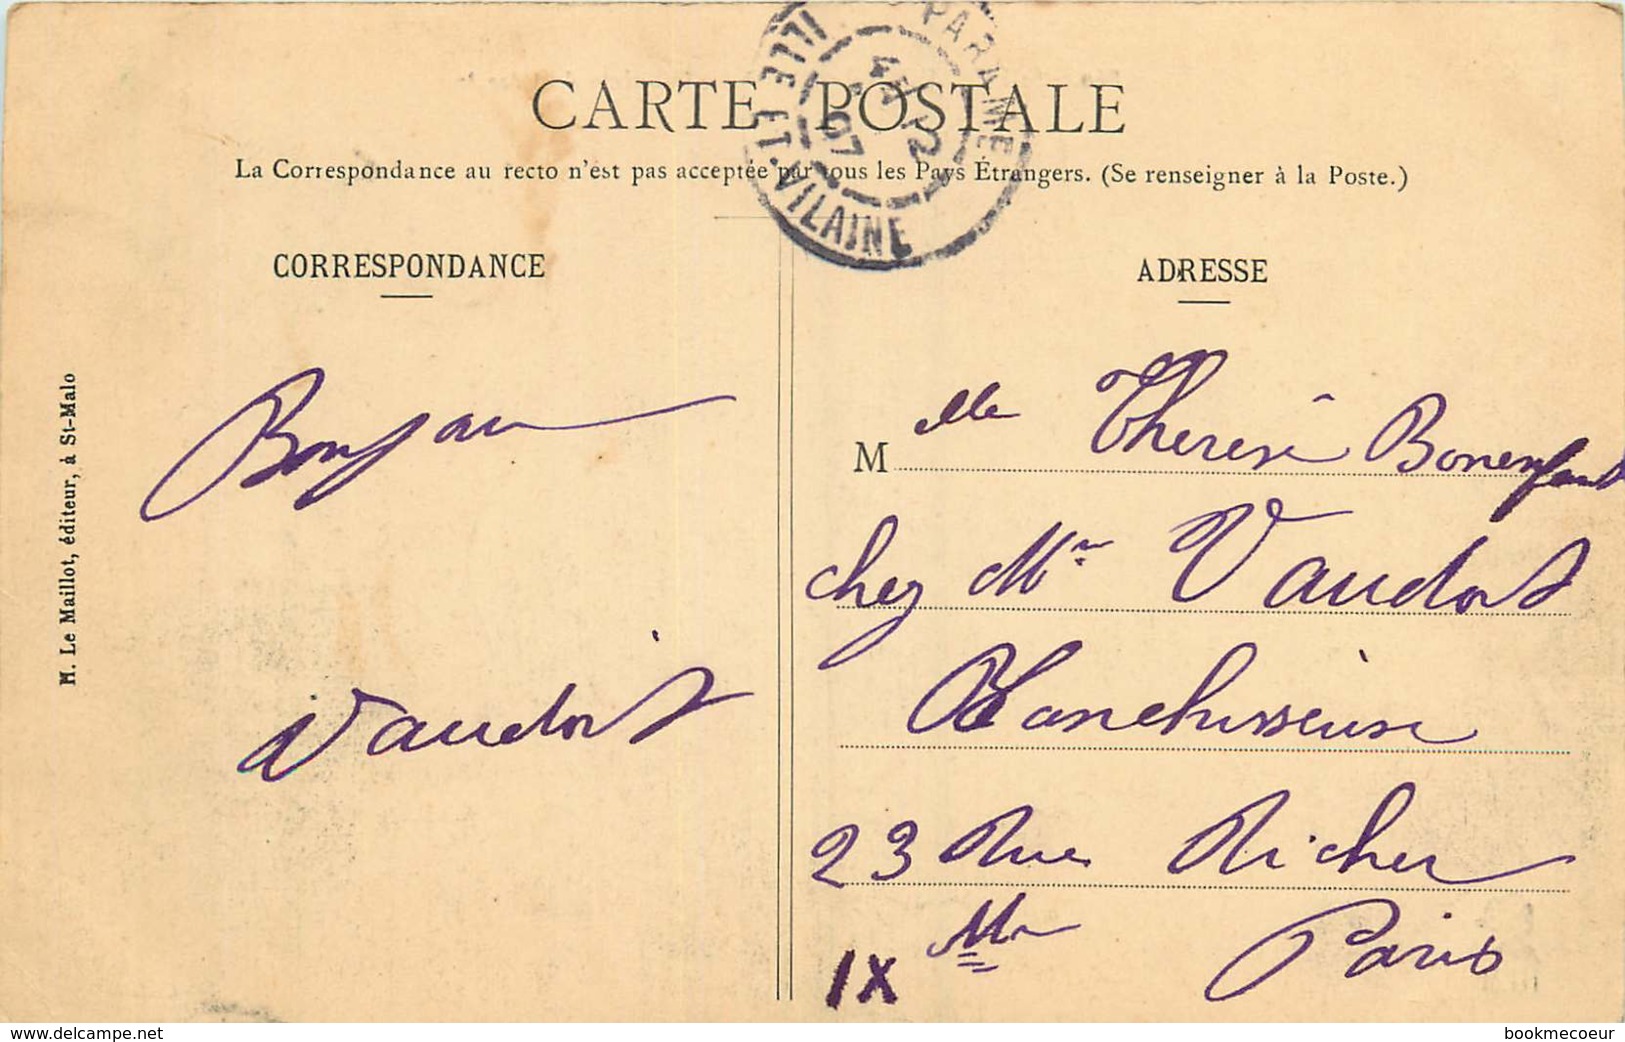 CARTE POSTALE
La Correspondance au recto n'est pas acceptée par tous les Pays Étrangers. (Se renseigner à la Poste.)
PARAMÉ
ILLE ET-VILAINE
12
07
CORRESPONDANCE
M. Le Maillot, éditeur, à St-Malo
Bonjour
Vaudoit
ADRESSE
Melle Thérèse Bonenfant
chez Mr Vaudoit
Blanchisseuse
23 Rue Richer
IX Paris
delcampe.net
bookmecoeur